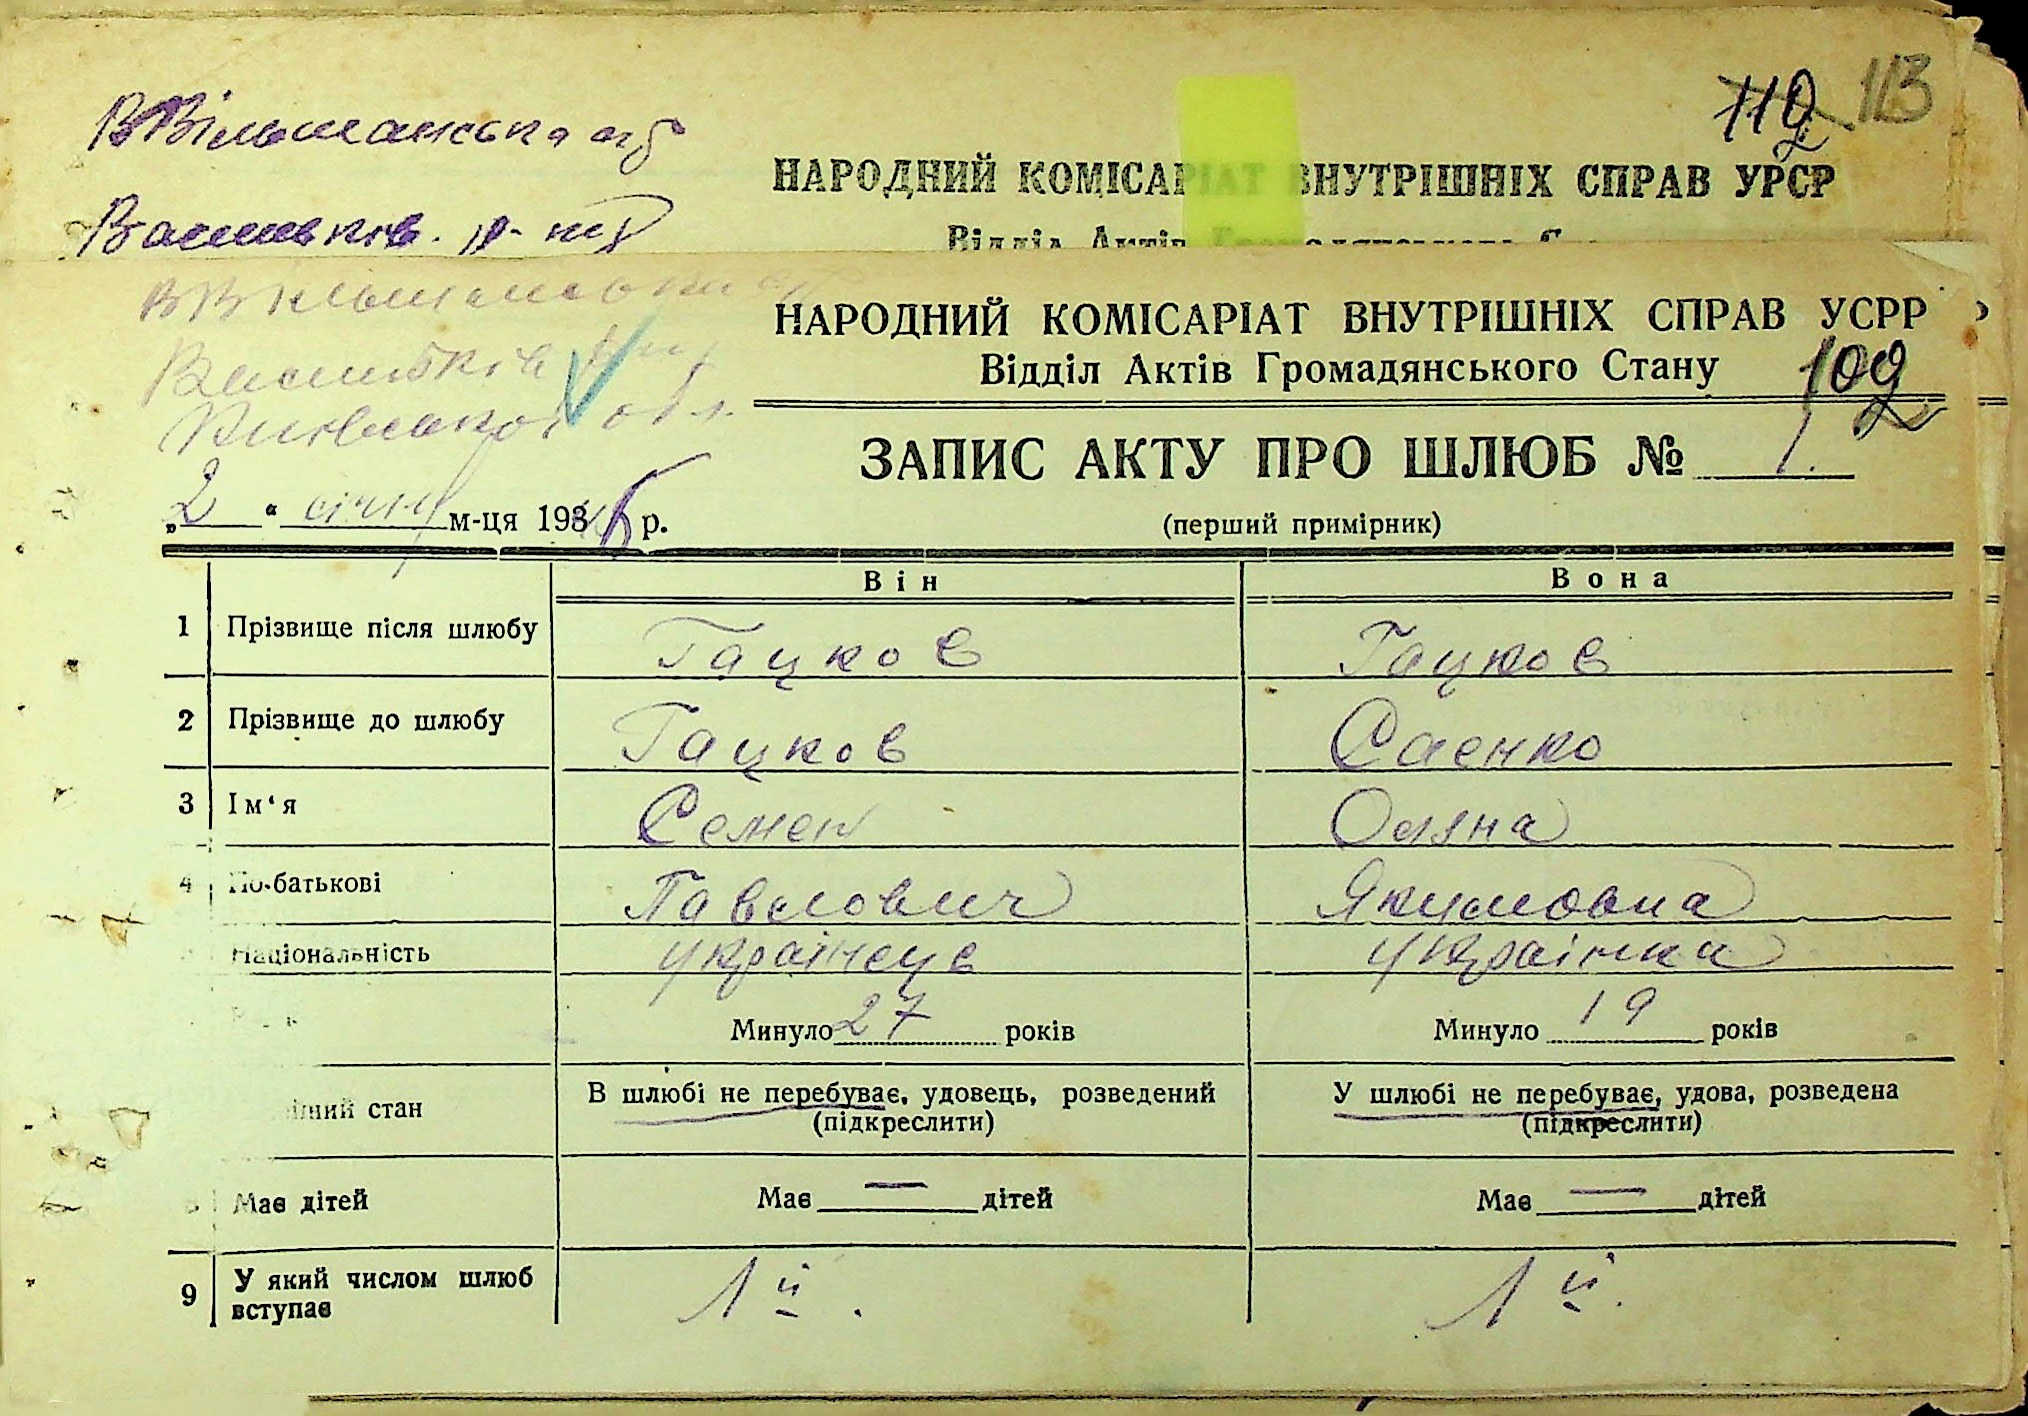 ВВільшанська с/р
112 113
НАРОДНИЙ КОМІСАРІАТ ВНУТРІШНІХ СПРАВ УРСР
Васильків. р-ну
Відділ Актів Громадянського
ВВільшанська
НАРОДНИЙ КОМІСАРІАТ ВНУТРІШНІХ СПРАВ УСРР
Васильків
Відділ Актів Громадянського Стану
102
Київської обл.
2
ЗАПИС АКТУ ПРО ШЛЮБ № 1.
„2" січня м-ця 1936 р.
(перший примірник)
Він Вона
1 Прізвище після шлюбу Гацков Гацков
2 Прізвище до шлюбу Гацков Саенко
3 Ім'я Семен Оляна
4 По-батькові Павлович Якумовна
Національність українець українка
Минуло 27 років Минуло 19 років
стан В шлюбі не перебуває, удовець, розведений У шлюбі не перебуває, удова, розведена
(підкреслити) (підкреслити)
Має дітей Має — дітей Має — дітей
9 У який числом шлюб 1й. 1й.
вступає